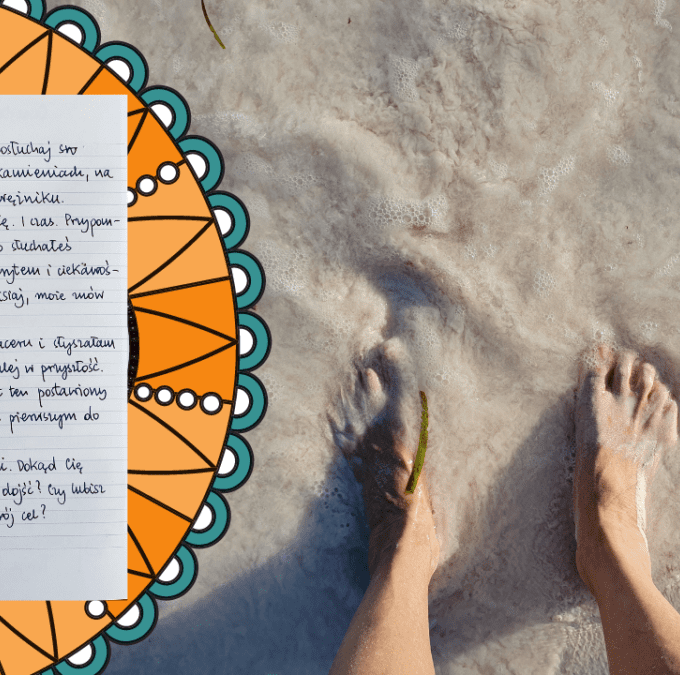 osłuchaj
kamieniach, na
ę. I czas. Przypom-
słuchałeś
i ciekawoś-
siaj, może znów
aceru i słyszałam
alej w przyszłość.
ten postawiony
pierwszym do
i. Dokąd Cię
dojść? Czy lubisz
ój cel?